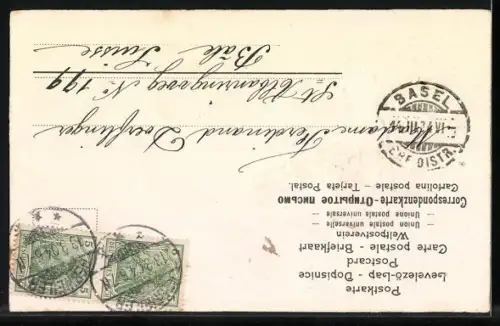 Postkarte
Levelező-Lap – Dopisnice
Postcard
Carte postale – Briefkaart
Weltpostverein
– Union postale universelle –
– Unione postale universale –
Correspondenzkarte – Открытое письмо
Cartolina postale – Tarjeta Postal.
Madame Ferdinand Doerflinger
St. Albanringweg No 199
Bâle
Suisse
BASEL
BRF. DISTR.